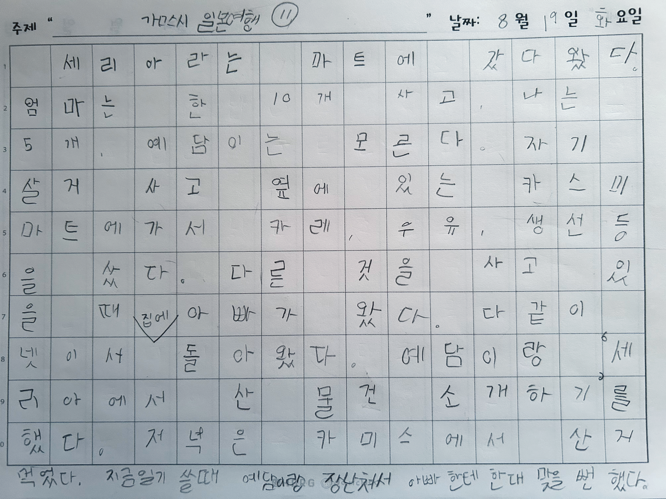 주제 " 가미스시 일본여행 ⑪ " 날짜: 8 월 19 일 화 요일
세리아라는 마트에 갔다 왔다.
엄마는 한 10개 사고, 나는
5개, 예담이는 모른다. 자기
살거 사고 옆에 있는 카스미
마트에 가서 카레, 우유, 생선 등
을 샀다. 다른 것을 사고 있
을 때 아빠가 왔다. 다같이
집에
넷이서 돌아왔다. 예담이랑 '세
리아에서 산 물건 소개하기'를
했다. 저녁은 카미스에서 산거
먹었다. 지금일기 쓸때 예담이랑 장난쳐서 아빠 한테 한대 맞을 뻔 했다.